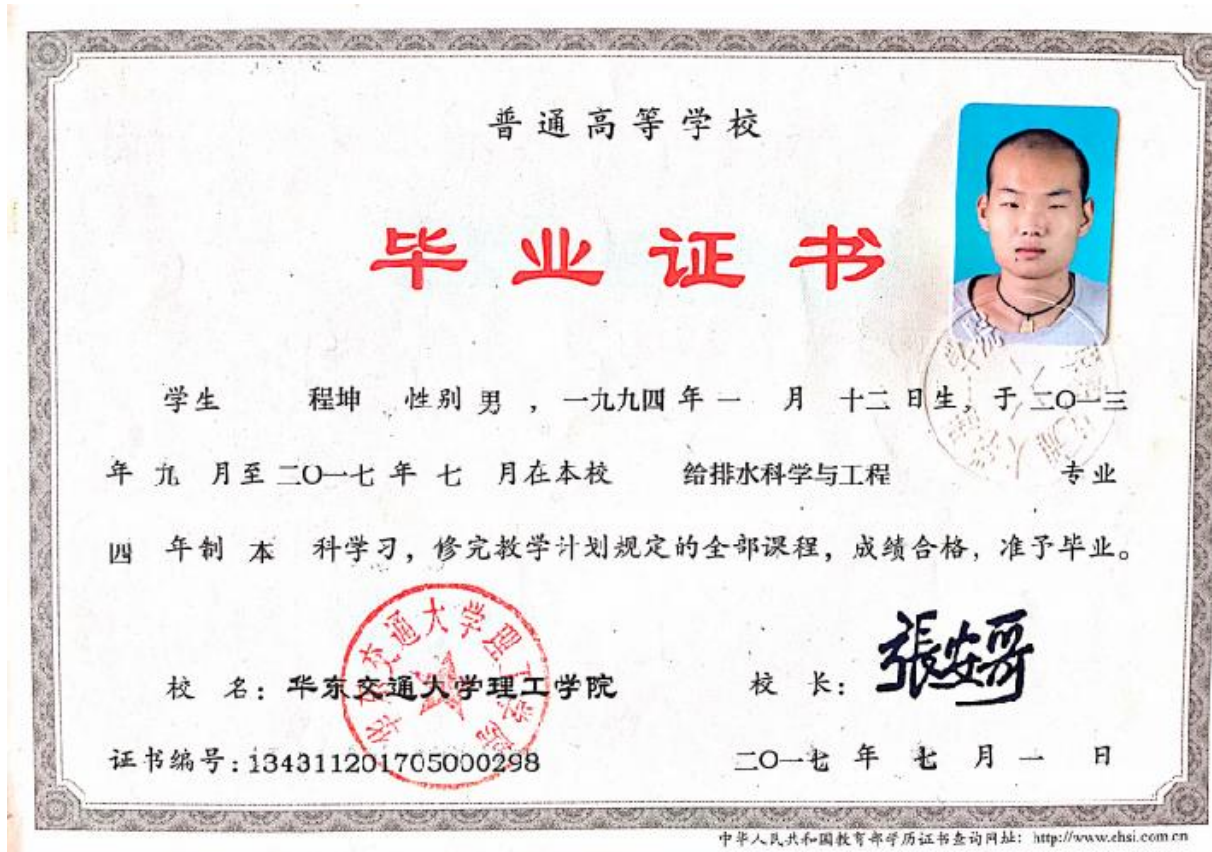 普通高等学校
毕业证书
学生 程坤 性别 男 ，一九九四 年 一 月 十二 日生，于 二〇一三
年 九 月至 二〇一七 年 七 月在本校 给排水科学与工程 专业
四 年制 本 科学习，修完教学计划规定的全部课程，成绩合格，准予毕业。
华东交通大学理工学院
校 名：华东交通大学理工学院 校 长：張安哥
证书编号：134311201705000298 二〇一七 年 七 月 一 日
中华人民共和国教育部学历证书查询网址：http://www.chsi.com.cn